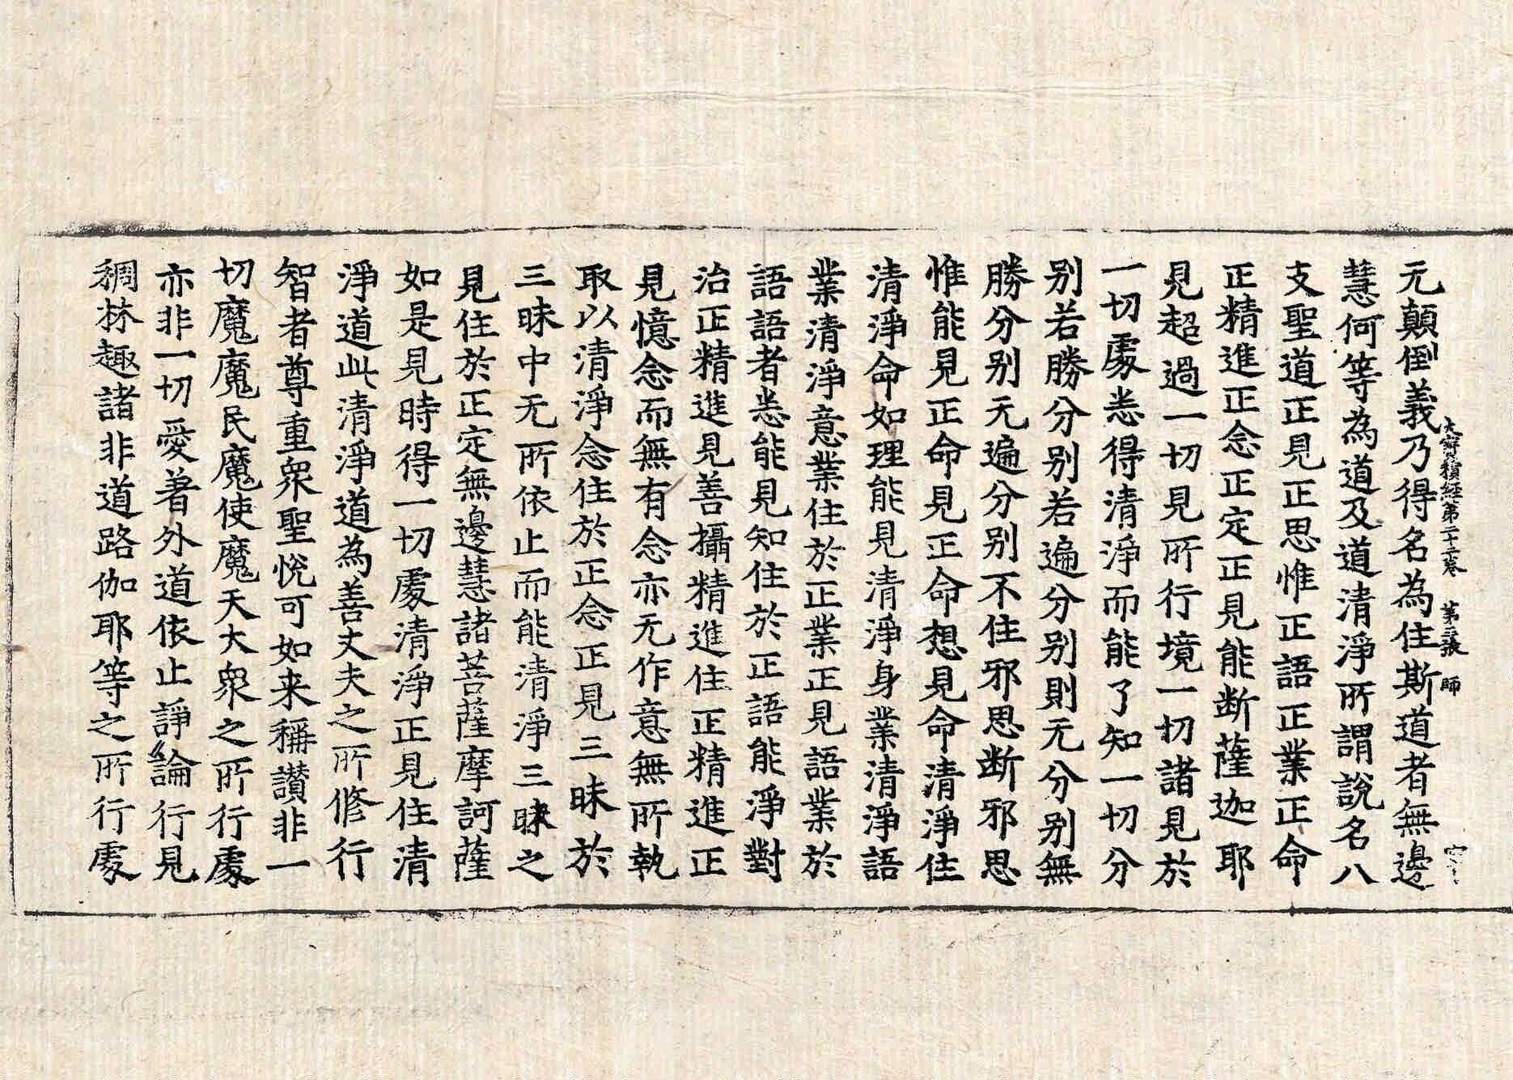 大寳積經第二十三卷 第三張 師
无顛倒義乃得名為住斯道者無邊
慧何等為道及道清淨所謂說名八
支聖道正見正思惟正語正業正命
正精進正念正定正見能断薩迦耶
見超過一切見所行境一切諸見於
一切處悉得清淨而能了知一切分
别若勝分别若遍分别則无分别無
勝分别无遍分别不住邪思断邪思
惟能見正命見正命想見命清淨住
清淨命如理能見清淨身業清淨語
業清淨意業住於正業正見語業於
語語者悉能見知住於正語能淨對
治正精進見善攝精進住正精進正
見憶念而無有念亦无作意無所執
取以清淨念住於正念正見三昧於
三昧中无所依止而能清淨三昧之
見住於正定無邊慧諸菩薩摩訶薩
如是見時得一切處清淨正見住清
淨道此清淨道為善丈夫之所修行
智者尊重衆聖悅可如来稱讚非一
切魔魔民魔使魔天大衆之所行處
亦非一切愛著外道依止諍論行見
稠林趣諸非道路伽耶等之所行處